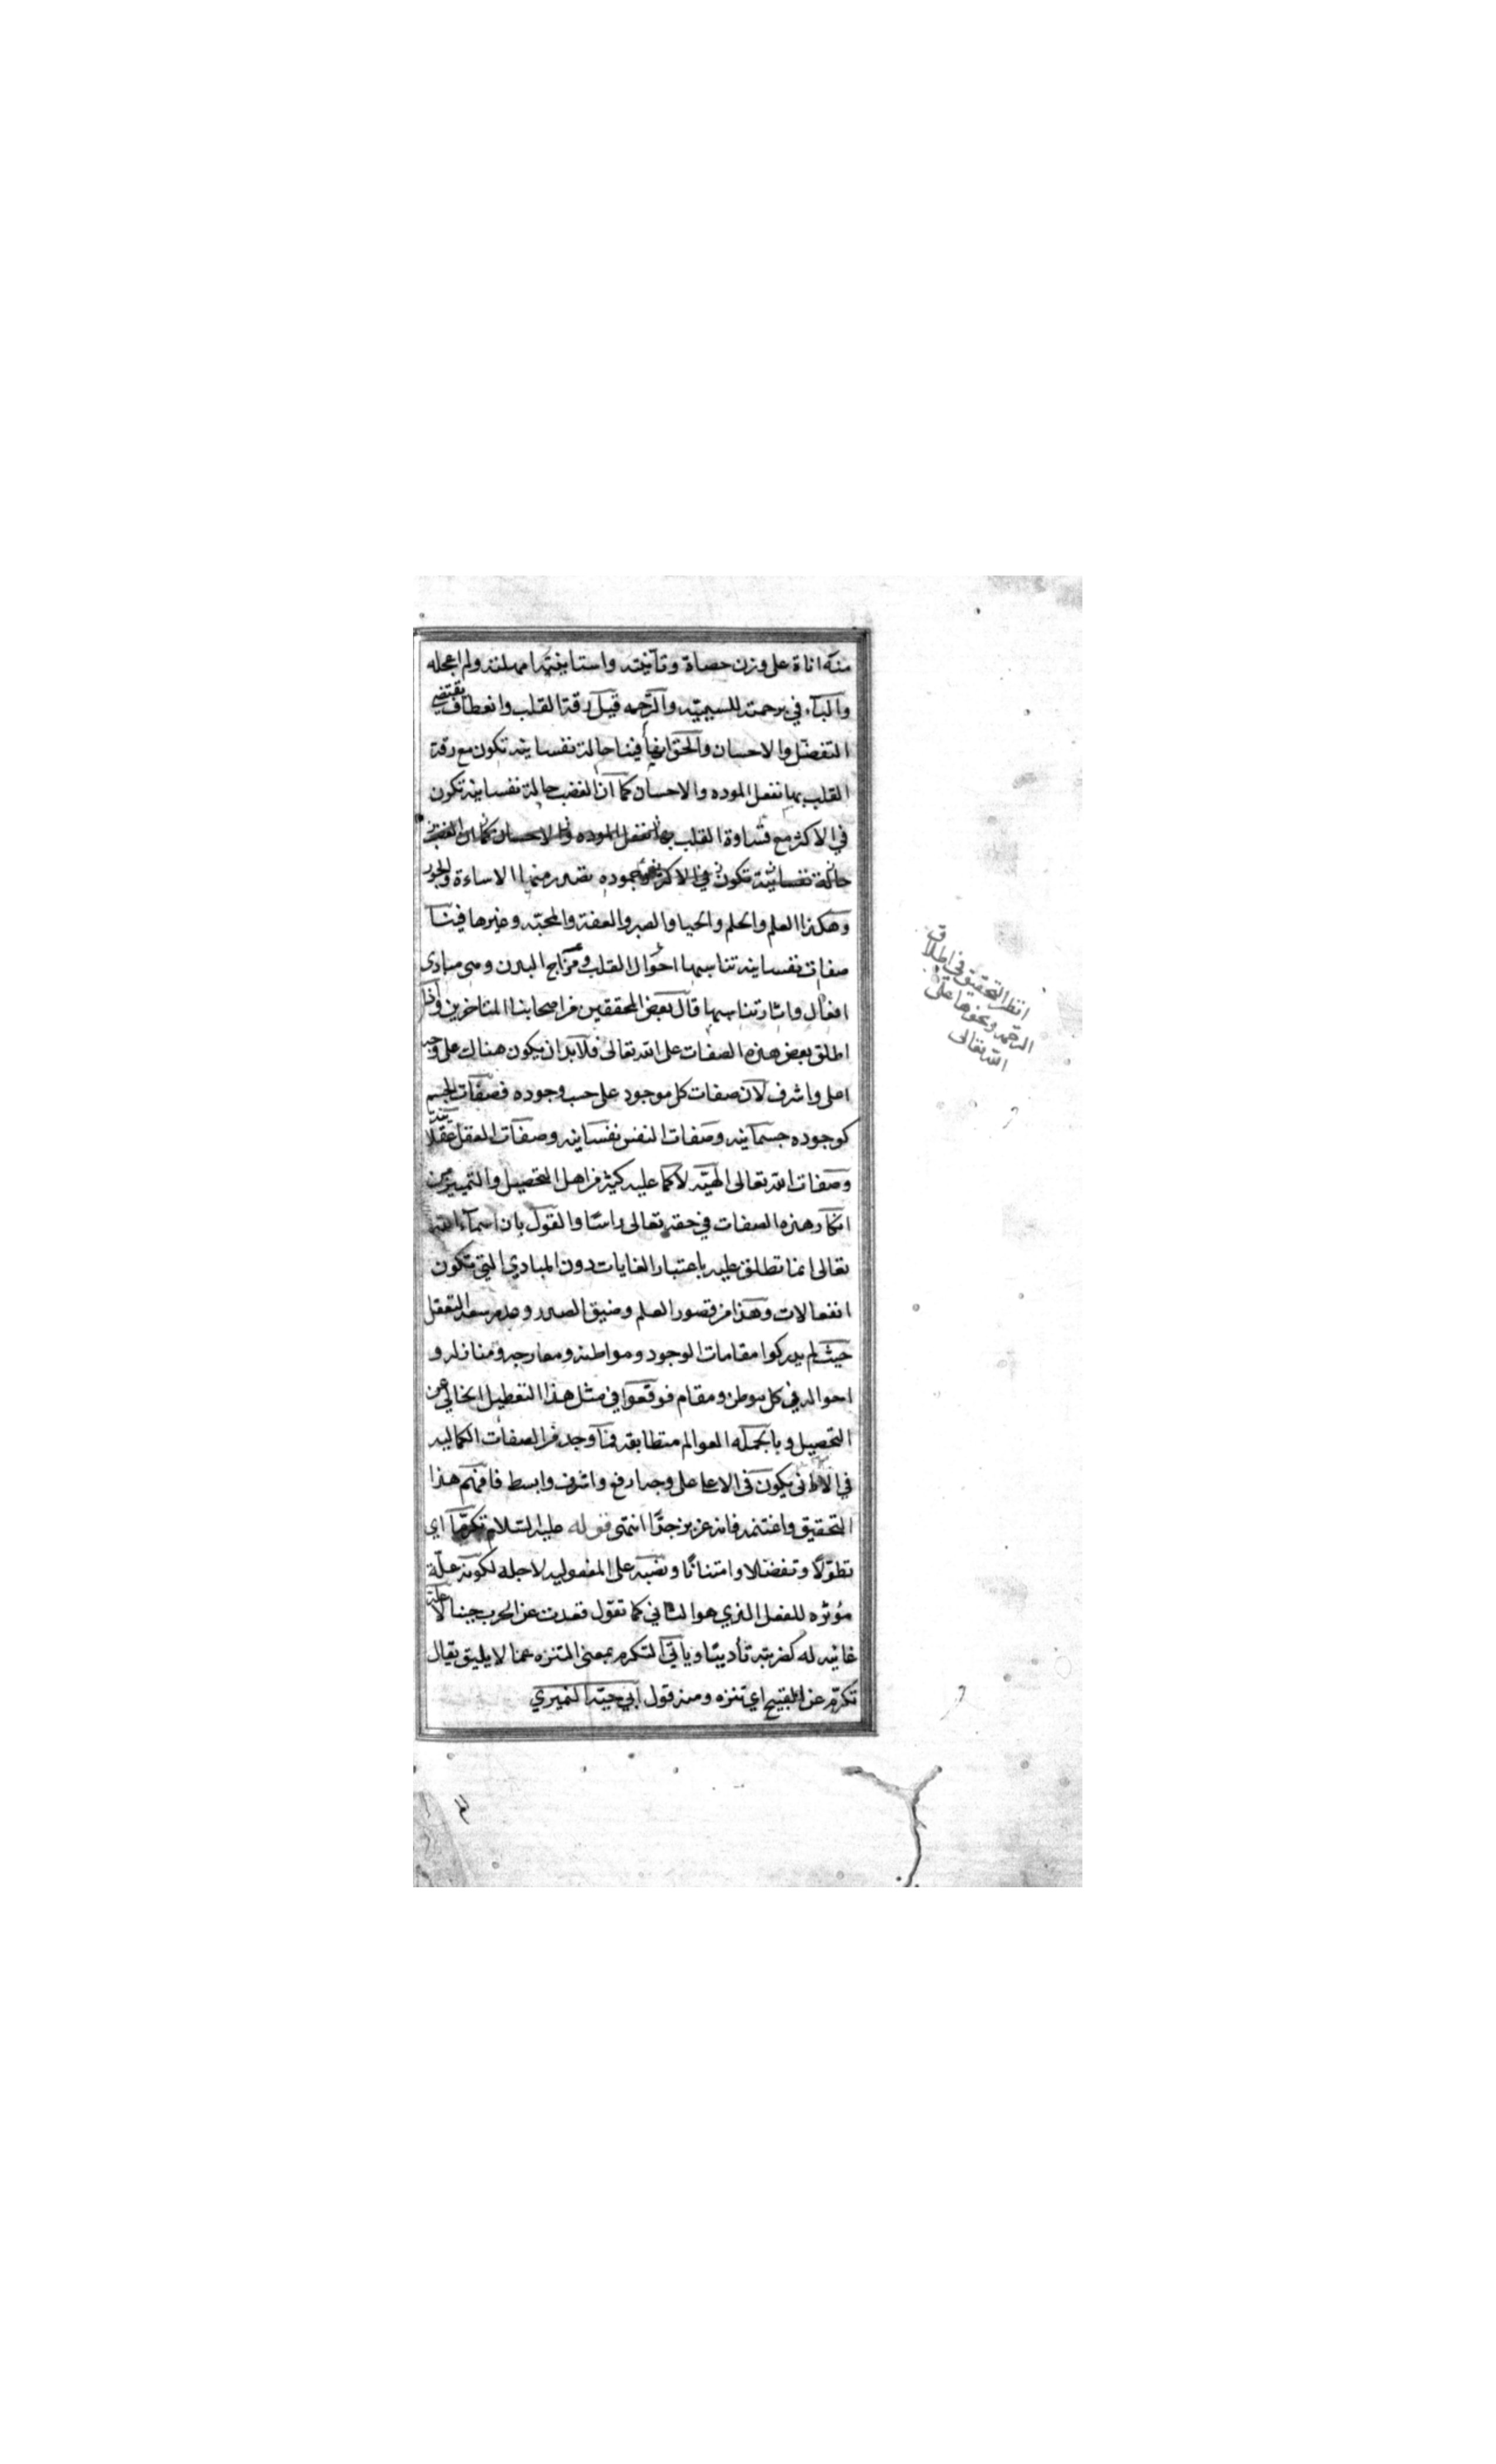 منه اناة على وزن حصاة وتأنيته واستانيته امهلته ولم اعجله
والباء في برحمته للسببيه والرحمه قيل رقة القلب وانعطاف يقتضي
التفضل والاحسان والحق انها فينا حالة نفسانيه تكون مع رقة
القلب بها نفعل الموده والاحسان كما ان الغضب حالة نفسانيه تكون
في الاكثر مع قساوة القلب بها نفعل الموده والاحسان كما ان الغضب
حالة نفسانية تكون في الاكثر وجموده يصدر منها الاساءة والجور
وهكذا العلم والحلم والحيا والصبر والعفة والمحبه وغيرها فينا
صفات نفسانيه تناسبها احوال القلب ومزاج البدن وهي مبادي
افعال واثار تناسبها قال بعض المحققين من اصحابنا المتاخرين واذا
اطلق بعض هذه الصفات على الله تعالى فلابد ان يكون هناك على وجه
اعلى واشرف لان صفات كل موجود على حسب وجوده فصفات الجسم
كوجوده جسمانيه وصفات النفس نفسانيه وصفات العقل عقلانية
وصفات الله تعالى الهيه لا كما عليه كثير من اهل التحصيل والتمييز من
انكار هذه الصفات في حقه تعالى راسا والقول بان اسماء الله
تعالى انما تطلق عليه باعتبار الغايات دون المبادي التي تكون
انفعالات وهذا من قصور العلم وضيق الصدر وعدم سعة التعقل
حيث لم يدركوا مقامات الوجود ومواطنه ومعارجه ومنازله و
احواله في كل موطن ومقام فوقعوا في مثل هذا التعطيل الخالي عن
التحصيل وبالجمله العوالم متطابقه فما وجد من الصفات الكماليه
في الادنى يكون في الاعلى على وجه ارفع واشرف وابسط فافهم هذا
التحقيق واغتنمه فانه عزيز جدا انتهى قوله عليه السلام تكرما اي
تطولا وتفضلا وامتنانا ونصبه على المفعوليه لاجله لكونه علة
مؤثره للفعل الذي هو الثاني كما تقول قعدت عن الحرب جبنا لا علة
غائيه له كضربته تأديبا وياتي التكرم بمعنى التنزه عما لا يليق يقال
تكرم عن القبيح اي تنزه ومنه قول ابي حية النميري
انظر التحقيق في اطلاق
الرحمه ونحوها على
الله تعالى